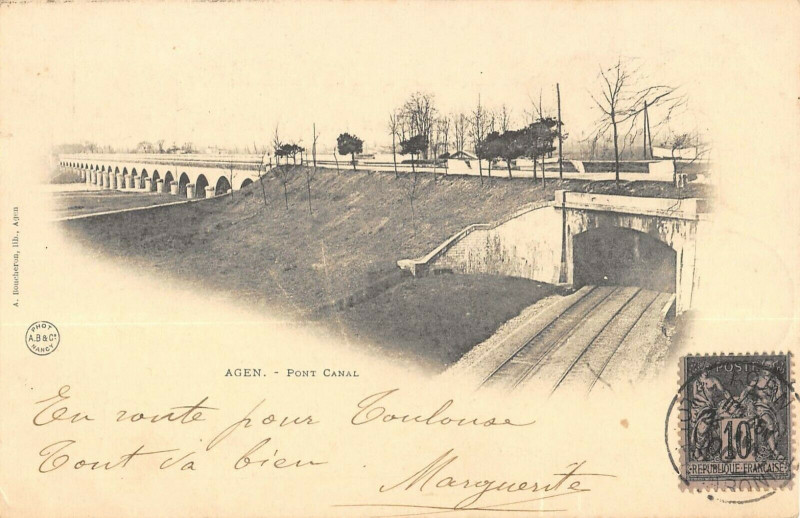 A. Boucheron, lib., Agen
PHOT
A.B & Cie
NANCY
AGEN. - PONT CANAL
En route pour Toulouse
Tout va bien
Marguerite
POSTES
10
REPUBLIQUE FRANCAISE